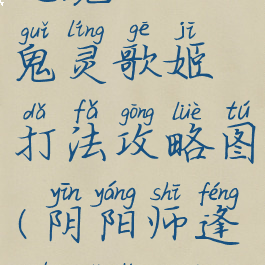 guǐ líng gē jī
鬼灵歌姬
dǎ fǎ gōng lüè tú
打法攻略图
yīn yáng shī féng
(阴阳师逢